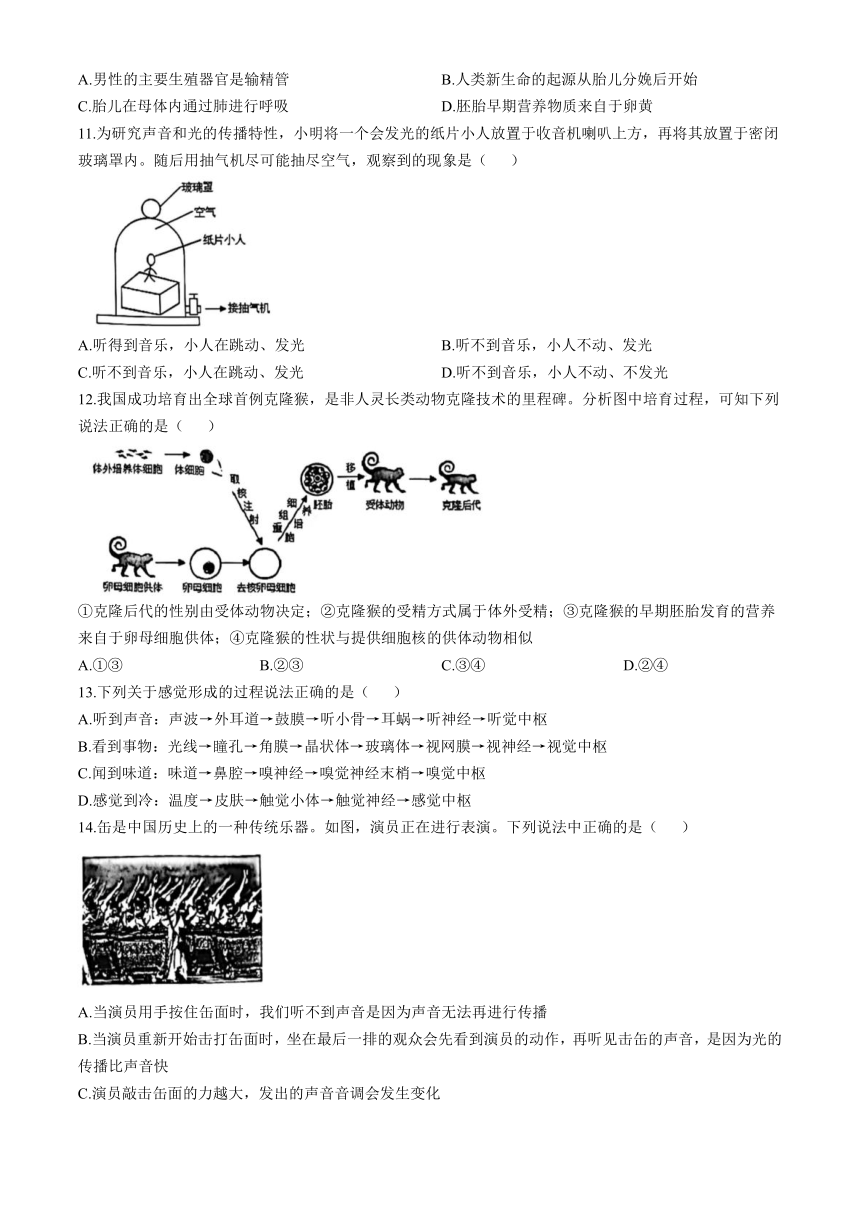 A.男性的主要生殖器官是输精管 B.人类新生命的起源从胎儿分娩后开始
C.胎儿在母体内通过肺进行呼吸 D.胚胎早期营养物质来自于卵黄
11.为研究声音和光的传播特性，小明将一个会发光的纸片小人放置于收音机喇叭上方，再将其放置于密闭
玻璃罩内。随后用抽气机尽可能抽尽空气，观察到的现象是（ ）
玻璃罩
空气
纸片小人
接抽气机
A.听得到音乐，小人在跳动、发光 B.听不到音乐，小人不动、发光
C.听不到音乐，小人在跳动、发光 D.听不到音乐，小人不动、不发光
12.我国成功培育出全球首例克隆猴，是非人灵长类动物克隆技术的里程碑。分析图中培育过程，可知下列
说法正确的是（ ）
体外培养体细胞 体细胞
取核注射
重组细胞
培养
胚胎
移植
受体动物 克隆后代
卵母细胞供体 卵母细胞 去核卵母细胞
①克隆后代的性别由受体动物决定；②克隆猴的受精方式属于体外受精；③克隆猴的早期胚胎发育的营养
来自于卵母细胞供体；④克隆猴的性状与提供细胞核的供体动物相似
A.①③ B.②③ C.③④ D.②④
13.下列关于感觉形成的过程说法正确的是（ ）
A.听到声音：声波→外耳道→鼓膜→听小骨→耳蜗→听神经→听觉中枢
B.看到事物：光线→瞳孔→角膜→晶状体→玻璃体→视网膜→视神经→视觉中枢
C.闻到味道：味道→鼻腔→嗅神经→嗅觉神经末梢→嗅觉中枢
D.感觉到冷：温度→皮肤→触觉小体→触觉神经→感觉中枢
14.缶是中国历史上的一种传统乐器。如图，演员正在进行表演。下列说法中正确的是（ ）
A.当演员用手按住缶面时，我们听不到声音是因为声音无法再进行传播
B.当演员重新开始击打缶面时，坐在最后一排的观众会先看到演员的动作，再听见击缶的声音，是因为光的
传播比声音快
C.演员敲击缶面的力越大，发出的声音音调会发生变化